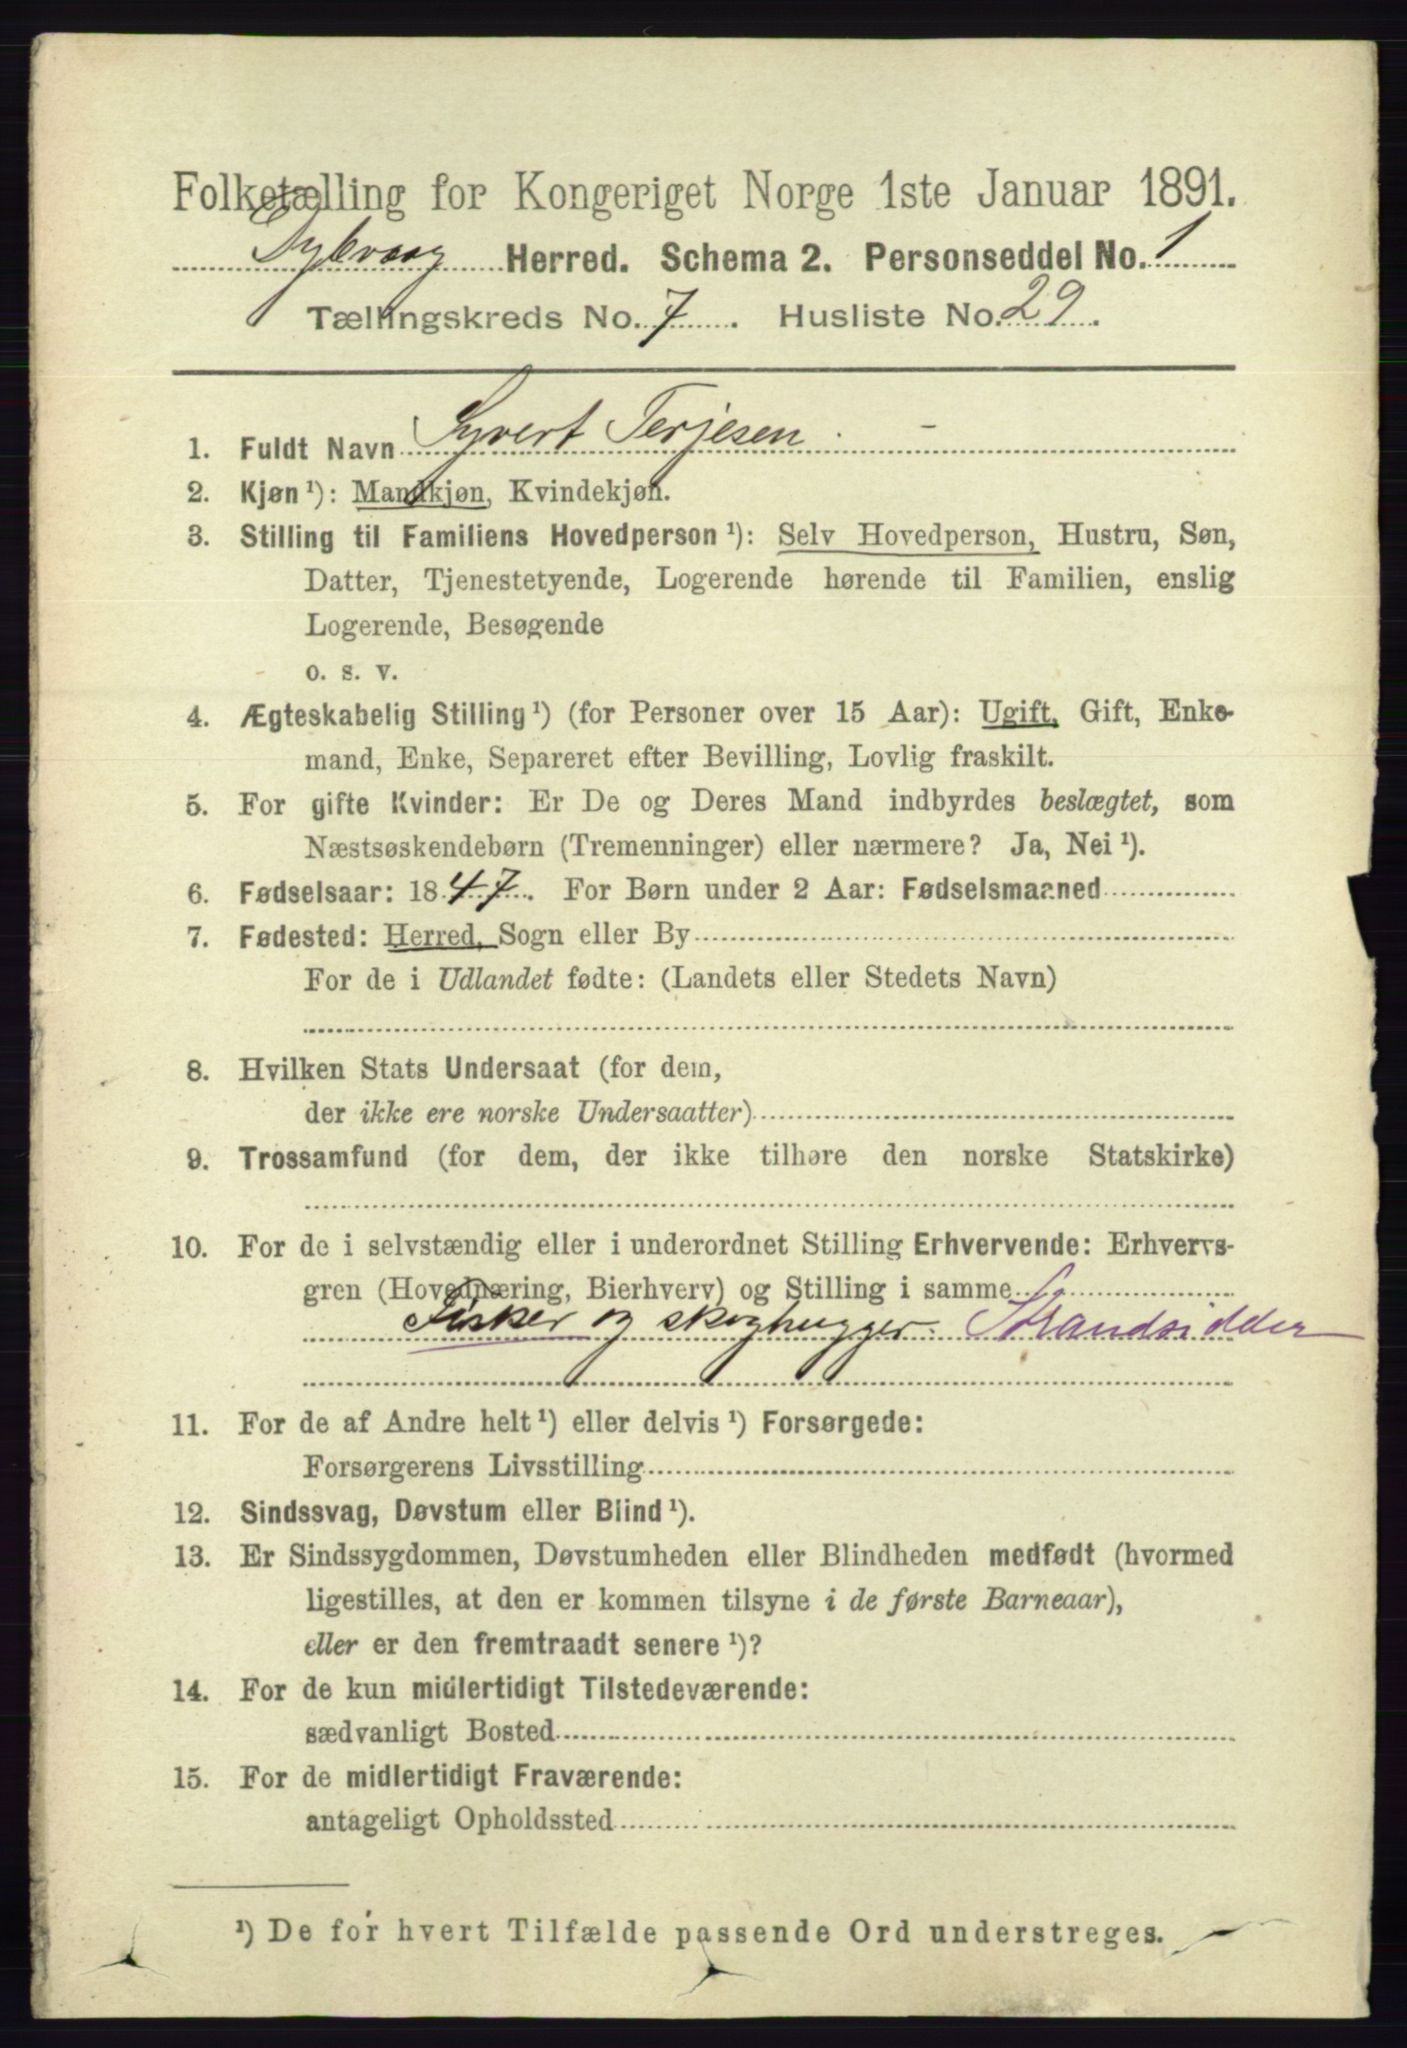 Folketælling for Kongeriget Norge 1ste Januar 1891.
Dybvaag Herred. Schema 2. Personseddel No. 1
Tællingskreds No. 7. Husliste No. 29.
1. Fuldt Navn Syvert Terjesen. –
2. Kjøn ¹): Mandkjøn, Kvindekjøn.
3. Stilling til Familiens Hovedperson ¹): Selv Hovedperson, Hustru, Søn,
Datter, Tjenestetyende, Logerende hørende til Familien, enslig
Logerende, Besøgende
o. s. v.
4. Ægteskabelig Stilling ¹) (for Personer over 15 Aar): Ugift, Gift, Enke-
mand, Enke, Separeret efter Bevilling, Lovlig fraskilt.
5. For gifte Kvinder: Er De og Deres Mand indbyrdes beslægtet, som
Næstsøskendebørn (Tremenninger) eller nærmere? Ja, Nei ¹).
6. Fødselsaar: 1847. For Børn under 2 Aar: Fødselsmaaned
7. Fødested: Herred, Sogn eller By
For de i Udlandet fødte: (Landets eller Stedets Navn)
8. Hvilken Stats Undersaat (for dem,
der ikke ere norske Undersaatter)
9. Trossamfund (for dem, der ikke tilhøre den norske Statskirke)
10. For de i selvstændig eller i underordnet Stilling Erhvervende: Erhvervs-
gren (Hovednæring, Bierhverv) og Stilling i samme
Fisker og skoghugger. Strandsidder
11. For de af Andre helt ¹) eller delvis ¹) Forsørgede:
Forsørgerens Livsstilling
12. Sindssvag, Døvstum eller Blind ¹).
13. Er Sindssygdommen, Døvstumheden eller Blindheden medfødt (hvormed
ligestilles, at den er kommen tilsyne i de første Barneaar),
eller er den fremtraadt senere ¹)?
14. For de kun midlertidigt Tilstedeværende:
sædvanligt Bosted
15. For de midlertidigt Fraværende:
antageligt Opholdssted
¹) De for hvert Tilfælde passende Ord understreges.